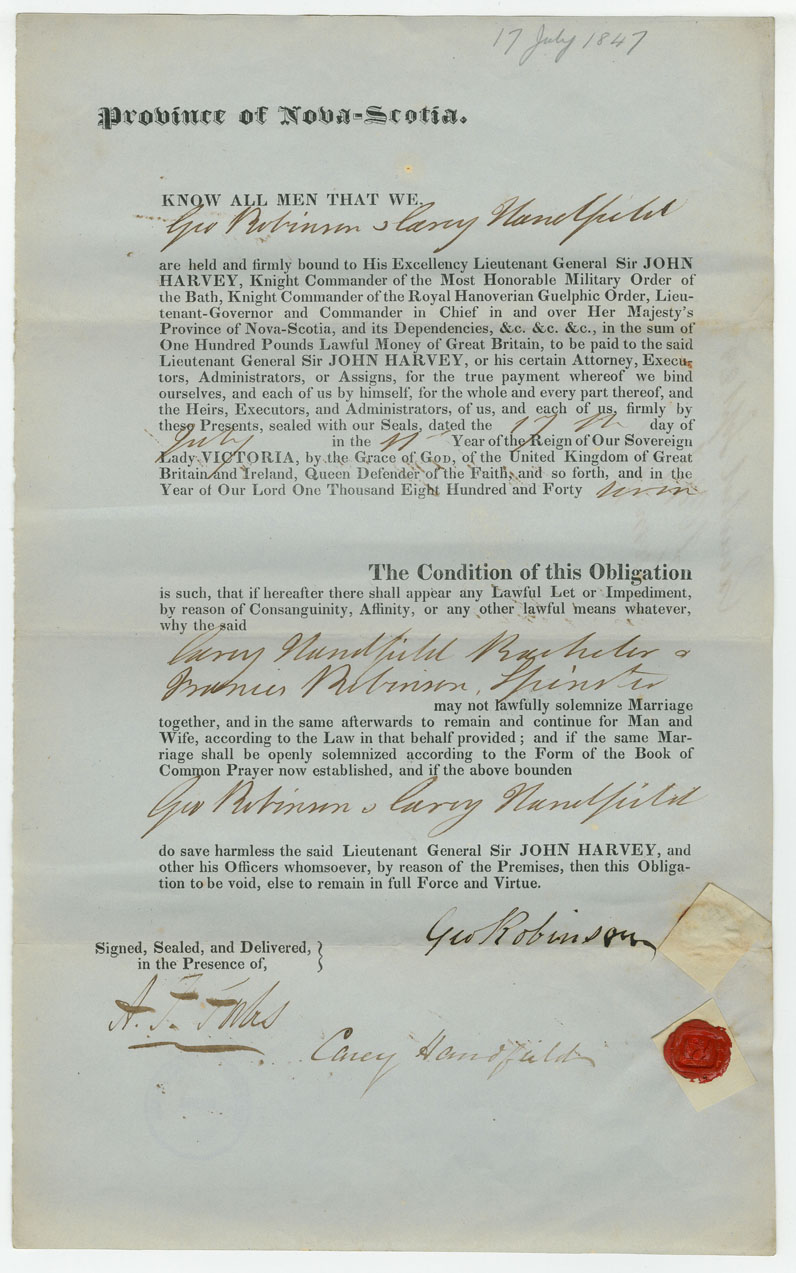 17 July 1847
Province of Nova-Scotia.
KNOW ALL MEN THAT WE,
Geo Robinson & Carey Handfield
are held and firmly bound to His Excellency Lieutenant General Sir JOHN
HARVEY, Knight Commander of the Most Honorable Military Order of
the Bath, Knight Commander of the Royal Hanoverian Guelphic Order, Lieu-
tenant-Governor and Commander in Chief in and over Her Majesty's
Province of Nova-Scotia, and its Dependencies, &c. &c. &c., in the sum of
One Hundred Pounds Lawful Money of Great Britain, to be paid to the said
Lieutenant General Sir JOHN HARVEY, or his certain Attorney, Execu-
tors, Administrators, or Assigns, for the true payment whereof we bind
ourselves, and each of us by himself, for the whole and every part thereof, and
the Heirs, Executors, and Administrators, of us, and each of us, firmly by
these Presents, sealed with our Seals, dated the 17th day of
July in the 11th Year of the Reign of Our Sovereign
Lady VICTORIA, by the Grace of GOD, of the United Kingdom of Great
Britain and Ireland, Queen Defender of the Faith, and so forth, and in the
Year of Our Lord One Thousand Eight Hundred and Forty seven
The Condition of this Obligation
is such, that if hereafter there shall appear any Lawful Let or Impediment,
by reason of Consanguinity, Affinity, or any other lawful means whatever,
why the said
Carey Handfield Bachelor &
Frances Robinson, Spinster
may not lawfully solemnize Marriage
together, and in the same afterwards to remain and continue for Man and
Wife, according to the Law in that behalf provided; and if the same Mar-
riage shall be openly solemnized according to the Form of the Book of
Common Prayer now established, and if the above bounden
Geo Robinson & Carey Handfield
do save harmless the said Lieutenant General Sir JOHN HARVEY, and
other his Officers whomsoever, by reason of the Premises, then this Obliga-
tion to be void, else to remain in full Force and Virtue.
Geo Robinson
Signed, Sealed, and Delivered,
in the Presence of,
A. F.
Carey Handfield